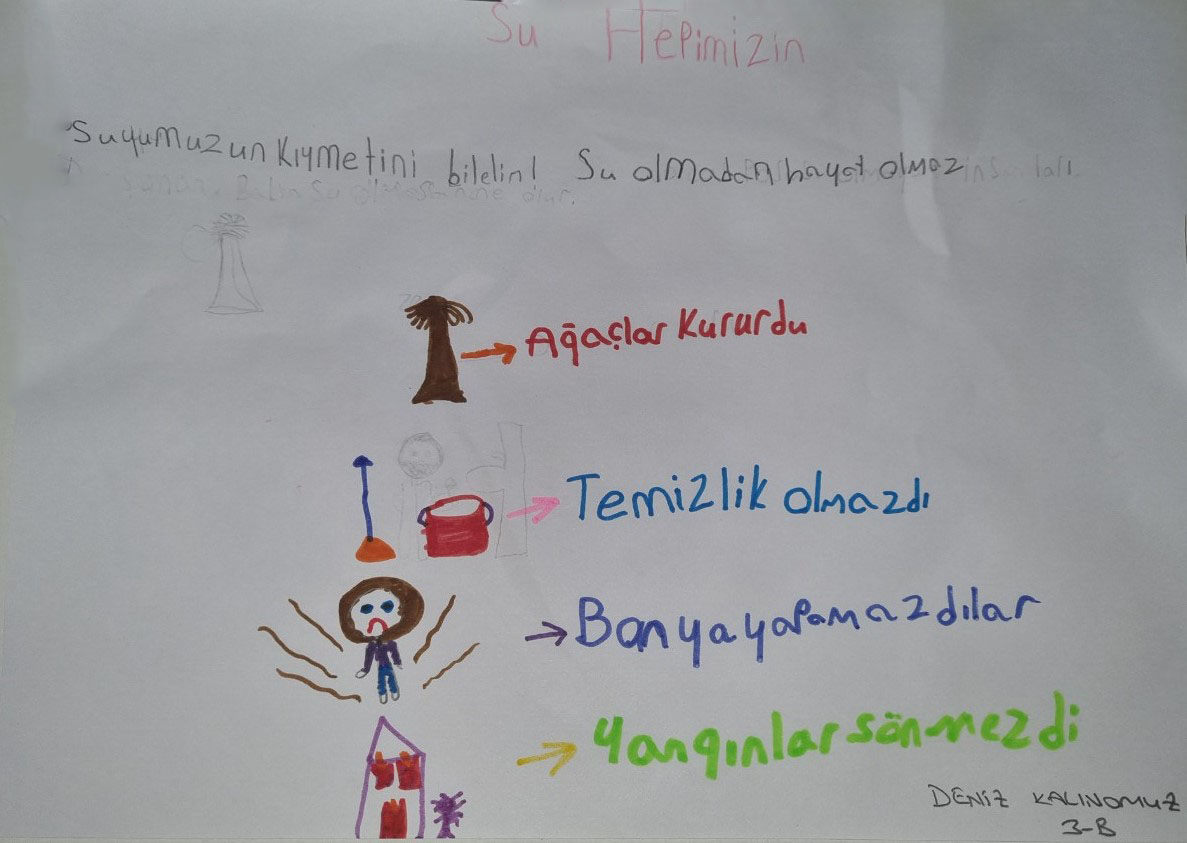 Su Hepimizin
Suyumuzun Kıymetini bilelim! Su olmadan hayat olmaz
Ağaçlar Kururdu
Temizlik olmazdı
Banya yapamazdılar
Yangınlar sönmezdi
DENİZ KALINOMUZ
3-B